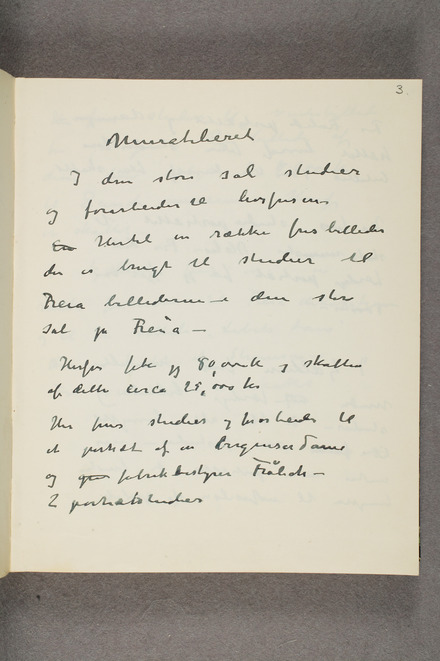 3.
Muratelieret
I den store sal studier
og forarbeider til
En Hertil en række frisbilleder
der er brugt til studier til
Freia billederne i den store
sal på Freia –
Herfor fik jeg 80,000 k og skatten
af dette circa 25,000 kr
Her fins studier og forarbeider til
et portræt af en Bergenserdame
og fabrikbestyrer Frölich –
2 portrætstudier